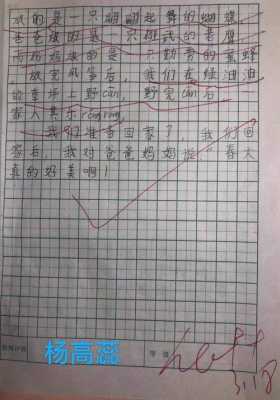 放的是一只翩翩起舞的蝴蝶。
爸爸放的是一只雄武的老鹰。
而妈妈放的是一只勤劳的蜜蜂
放完风筝后,我们在绿油油
的草坪上野cān,野完cān后
家人其乐róngróng,
我们准备回家了,我们回
家后,我对爸爸妈妈说“春天
真的好美啊!
杨高蕊
等级
3.18